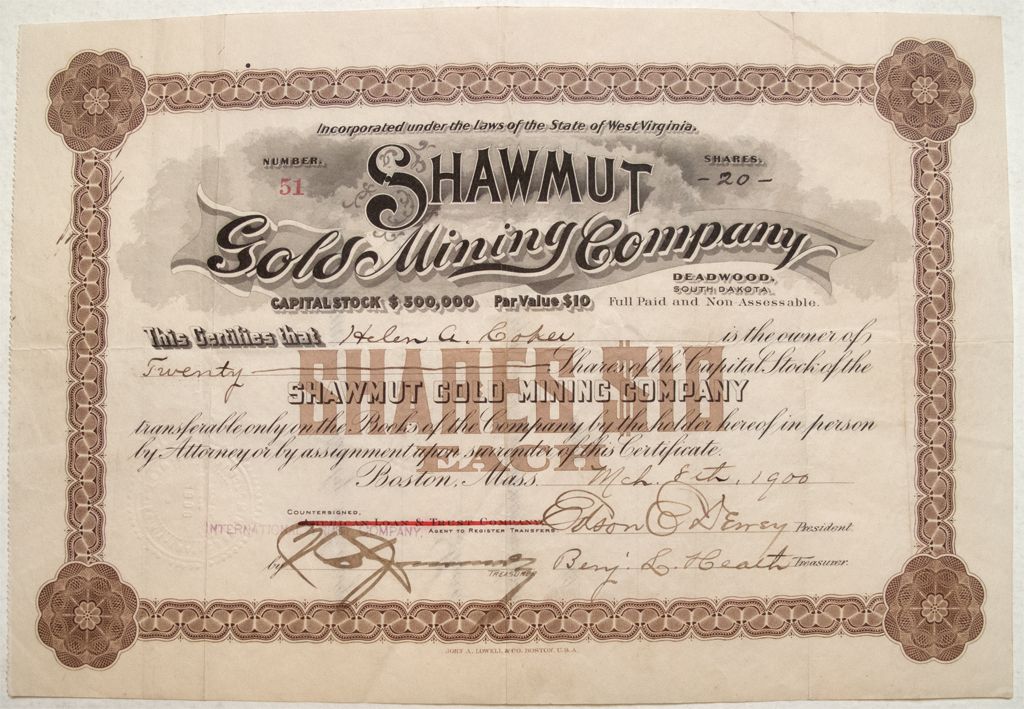 Incorporated under the Laws of the State of West Virginia.
NUMBER.
51
SHARES.
- 20 -
SHAWMUT
Gold Mining Company
DEADWOOD,
SOUTH DAKOTA
CAPITAL STOCK $500,000 Par Value $10 Full Paid and Non-Assessable.
This Certifies that Helen A. Coker is the owner of
Twenty Shares of the Capital Stock of the
SHARES $10
SHAWMUT GOLD MINING COMPANY
transferable only on the Books of the Company by the holder hereof in person
by Attorney or by assignment upon surrender of this Certificate.
EACH
Boston, Mass. Mch. 8th, 1900
COUNTERSIGNED,
LOAN & TRUST COMPANY
INTERNATIONAL COMPANY, AGENT TO REGISTER TRANSFERS
Edson C Dewey President.
by TREASURER
Benj. L. Heath Treasurer.
JOHN A. LOWELL & CO. BOSTON, U.S.A.